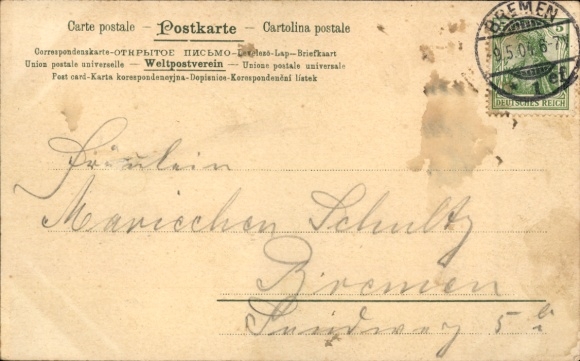 Carte postale – Postkarte – Cartolina postale
Correspondenzkarte-ОТКРЫТОЕ ПИСЬМО-Levelező-Lap-Briefkaart
Union postale universelle – Weltpostverein – Unione postale universale
Post card-Karta korespondencyjna-Dopisnice-Korespondenční lístek
BREMEN
9.5.04. 6-7
1
5
DEUTSCHES REICH
Fräulein
Mariechen Schultz
Bremen
5